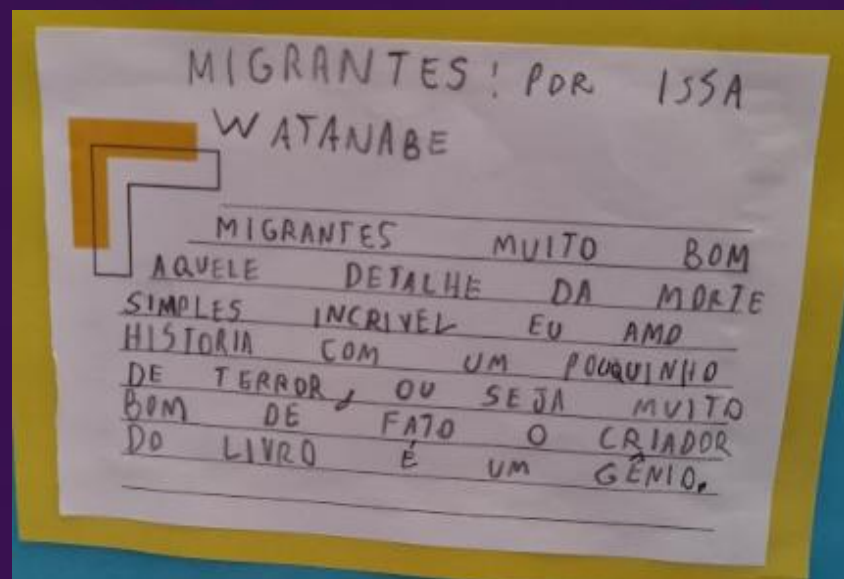 MIGRANTES! POR ISSA
WATANABE
MIGRANTES MUITO BOM
AQUELE DETALHE DA MORTE
SIMPLES INCRIVEL EU AMO
HISTORIA COM UM POUQUINHO
DE TERROR, OU SEJA MUITO
BOM DE FATO O CRIADOR
DO LIVRO É UM GÊNIO.